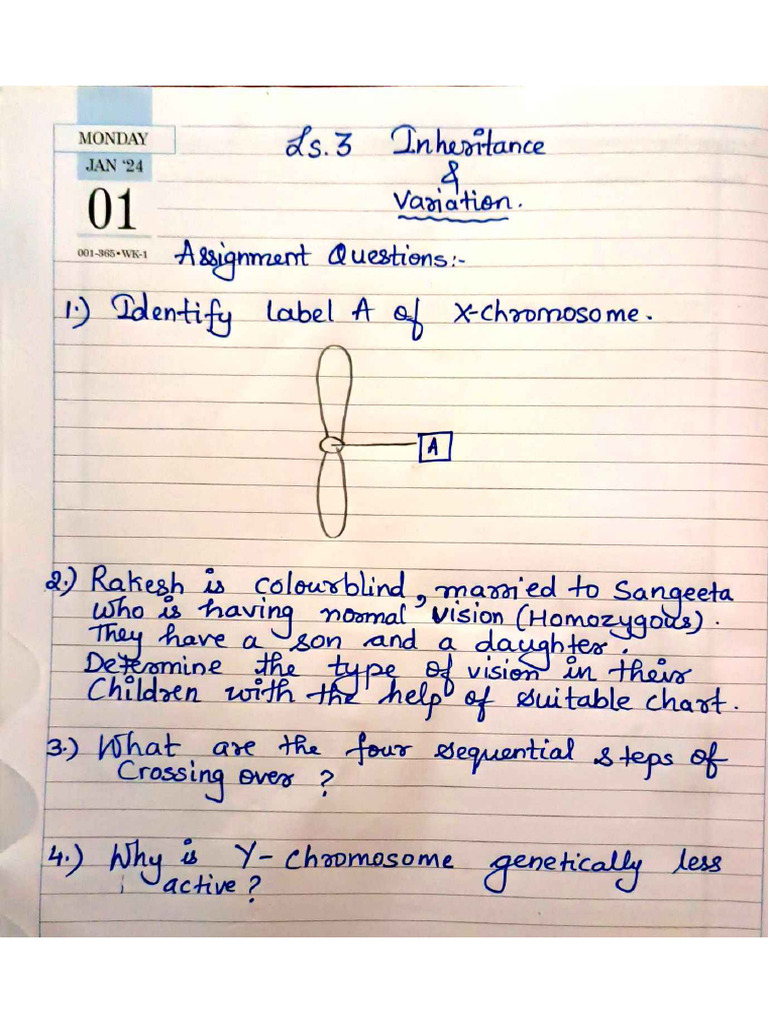 MONDAY
JAN '24
01
001-365•WK-1
Ls. 3 Inheritance
&
Variation.
Assignment Questions:-
1.) Identify label A of X-chromosome.
A
2.) Rakesh is colourblind, married to Sangeeta
who is having normal vision (Homozygous).
They have a son and a daughter.
Determine the type of vision in their
Children with the help of suitable chart.
3.) What are the four sequential steps of
Crossing over ?
4.) Why is Y- Chromosome genetically less
active ?